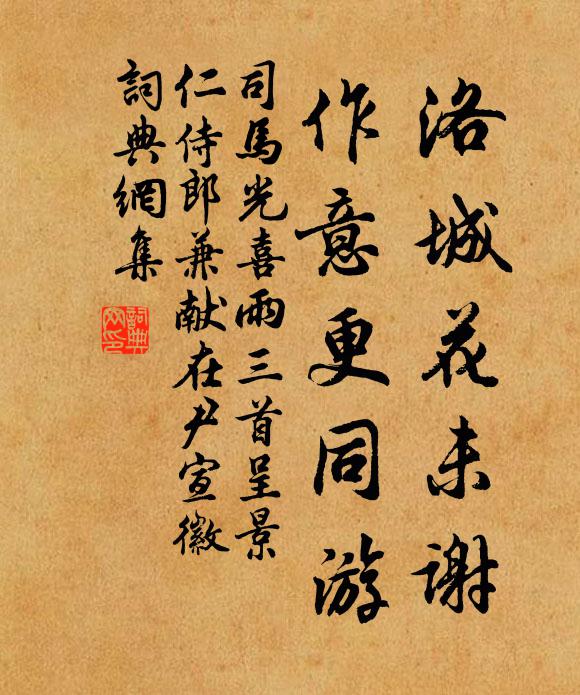 洛城花未谢
作意更同游
司馬光喜雨三首呈景
仁侍郎兼献在尹宣徽
詞典網集
詞典
网印